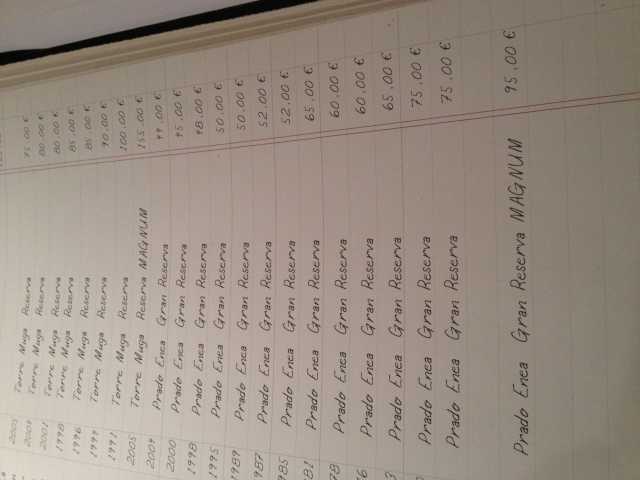 2005 Torre Muga Reserva 75.00 €
2004 Torre Muga Reserva 80.00 €
2001 Torre Muga Reserva 80.00 €
1998 Torre Muga Reserva 85.00 €
1996 Torre Muga Reserva 85.00 €
1994 Torre Muga Reserva 90.00 €
1991 Torre Muga Reserva 100.00 €
2005 Torre Muga Reserva MAGNUM 155.00 €
2004 Prado Enea Gran Reserva 44.00 €
2000 Prado Enea Gran Reserva 45.00 €
1998 Prado Enea Gran Reserva 48.00 €
1995 Prado Enea Gran Reserva 50.00 €
1989 Prado Enea Gran Reserva 50.00 €
987 Prado Enea Gran Reserva 52.00 €
985 Prado Enea Gran Reserva 52.00 €
81 Prado Enea Gran Reserva 65.00 €
78 Prado Enea Gran Reserva 60.00 €
6 Prado Enea Gran Reserva 60.00 €
3 Prado Enea Gran Reserva 65.00 €
Prado Enea Gran Reserva 75.00 €
Prado Enea Gran Reserva 75.00 €
Prado Enea Gran Reserva MAGNUM 95.00 €